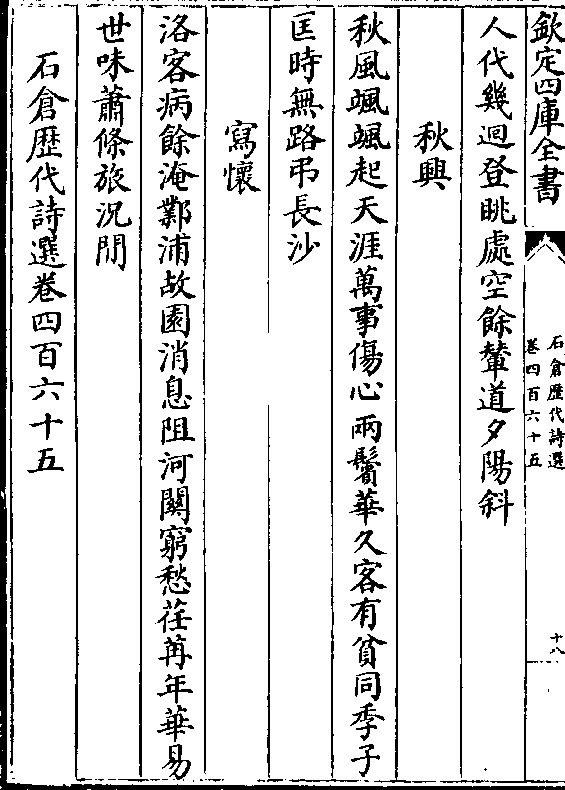 欽定四庫全書
石倉歷代詩選
卷四百六十五
十八
人代幾迴登眺處空餘輦道夕陽斜
秋興
秋風颯颯起天涯萬事傷心兩鬢華久客有貧同季子
匡時無路弔長沙
寫懷
洛客病餘淹鄴浦故園消息阻河關窮愁荏苒年華易
世味蕭條旅況閒
石倉歷代詩選卷四百六十五